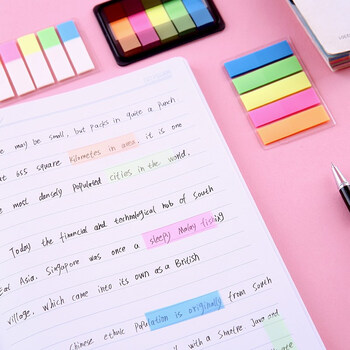 may be small, but packs in quite a punch
at 865 square kilometes in area, it is one
most densely populated cities in the world,
Today the financial and technological hub of South
Asia, Singapore was once a sleepy Malay fishing
village, which came into its own as a British
Chinese ethnic population is originally from South
with a share